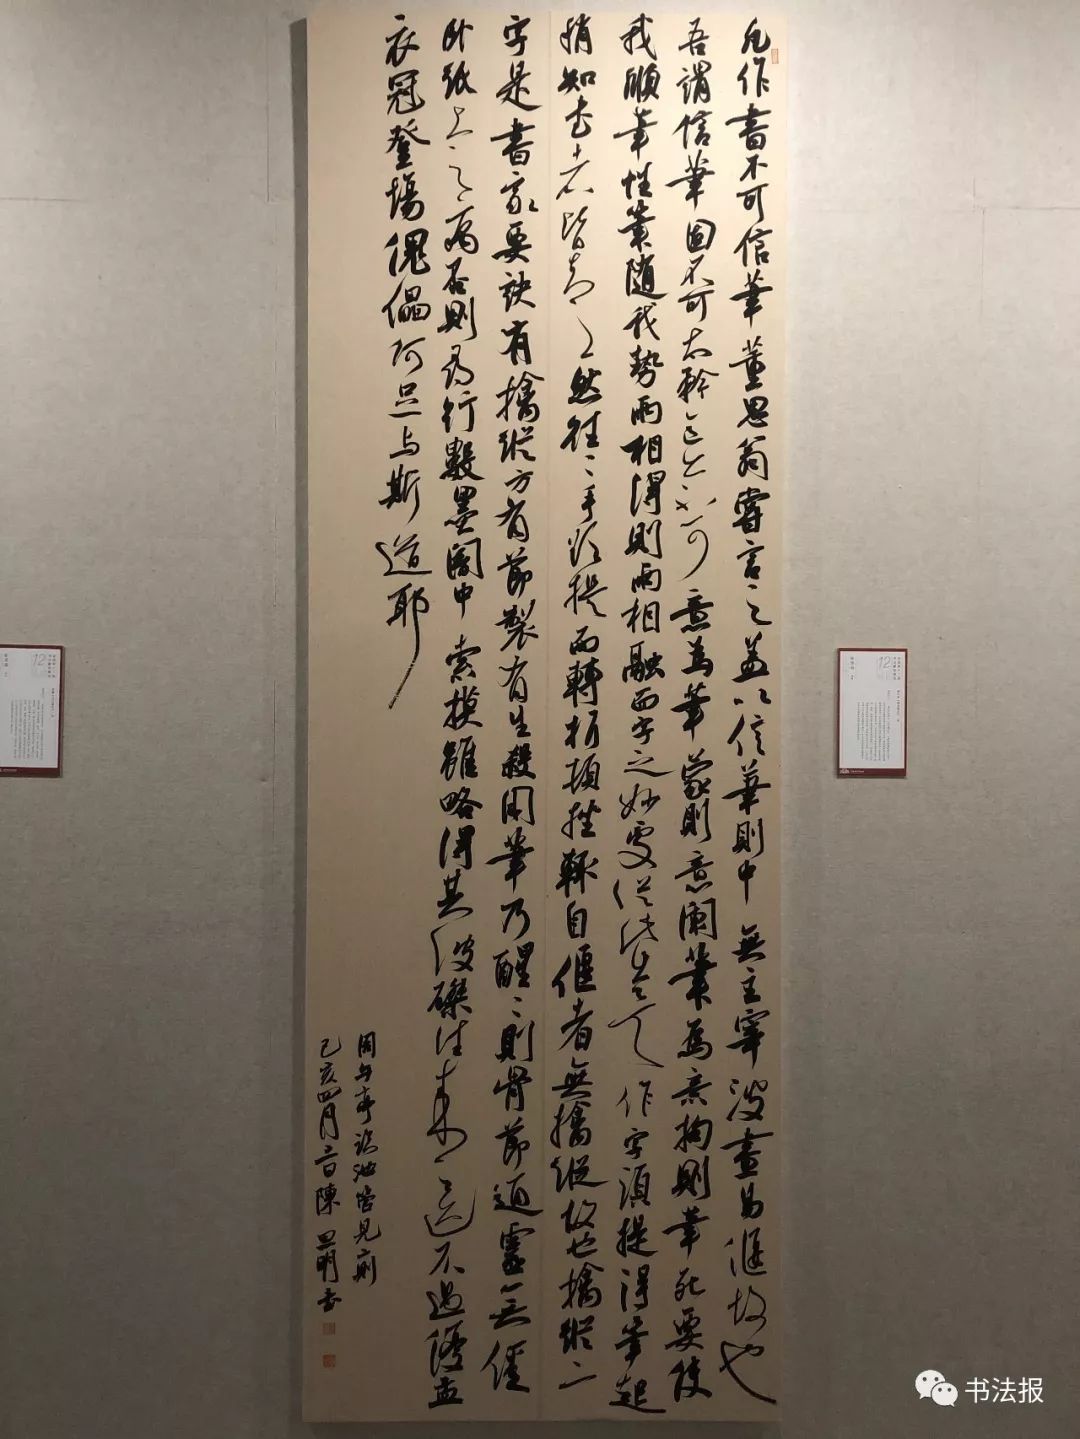 凡作書不可信筆董思翁嘗言之蓋以信筆則中無主宰波畫易偃故也
吾謂信筆固不可太矜意亦不可意為筆蒙則意闌筆為意拘則筆死要使
我順筆性筆隨我勢兩相得則兩相融而字之妙處從此出矣作字須提得筆起
稍知書者皆知之然往往手欲提而轉折頓挫輒自偃者無擒縱故也擒縱二
字是書家要訣有擒縱方有節製有生殺用筆乃醒醒則骨節通靈無僵
臥紙上之病否則為行數墨闇中索摸雖略得其波磔往來之迹不過優孟
衣冠登場傀儡何足與斯道耶
周午亭臨池管見一則
己亥四月一日陳思明書
12
12
书法报